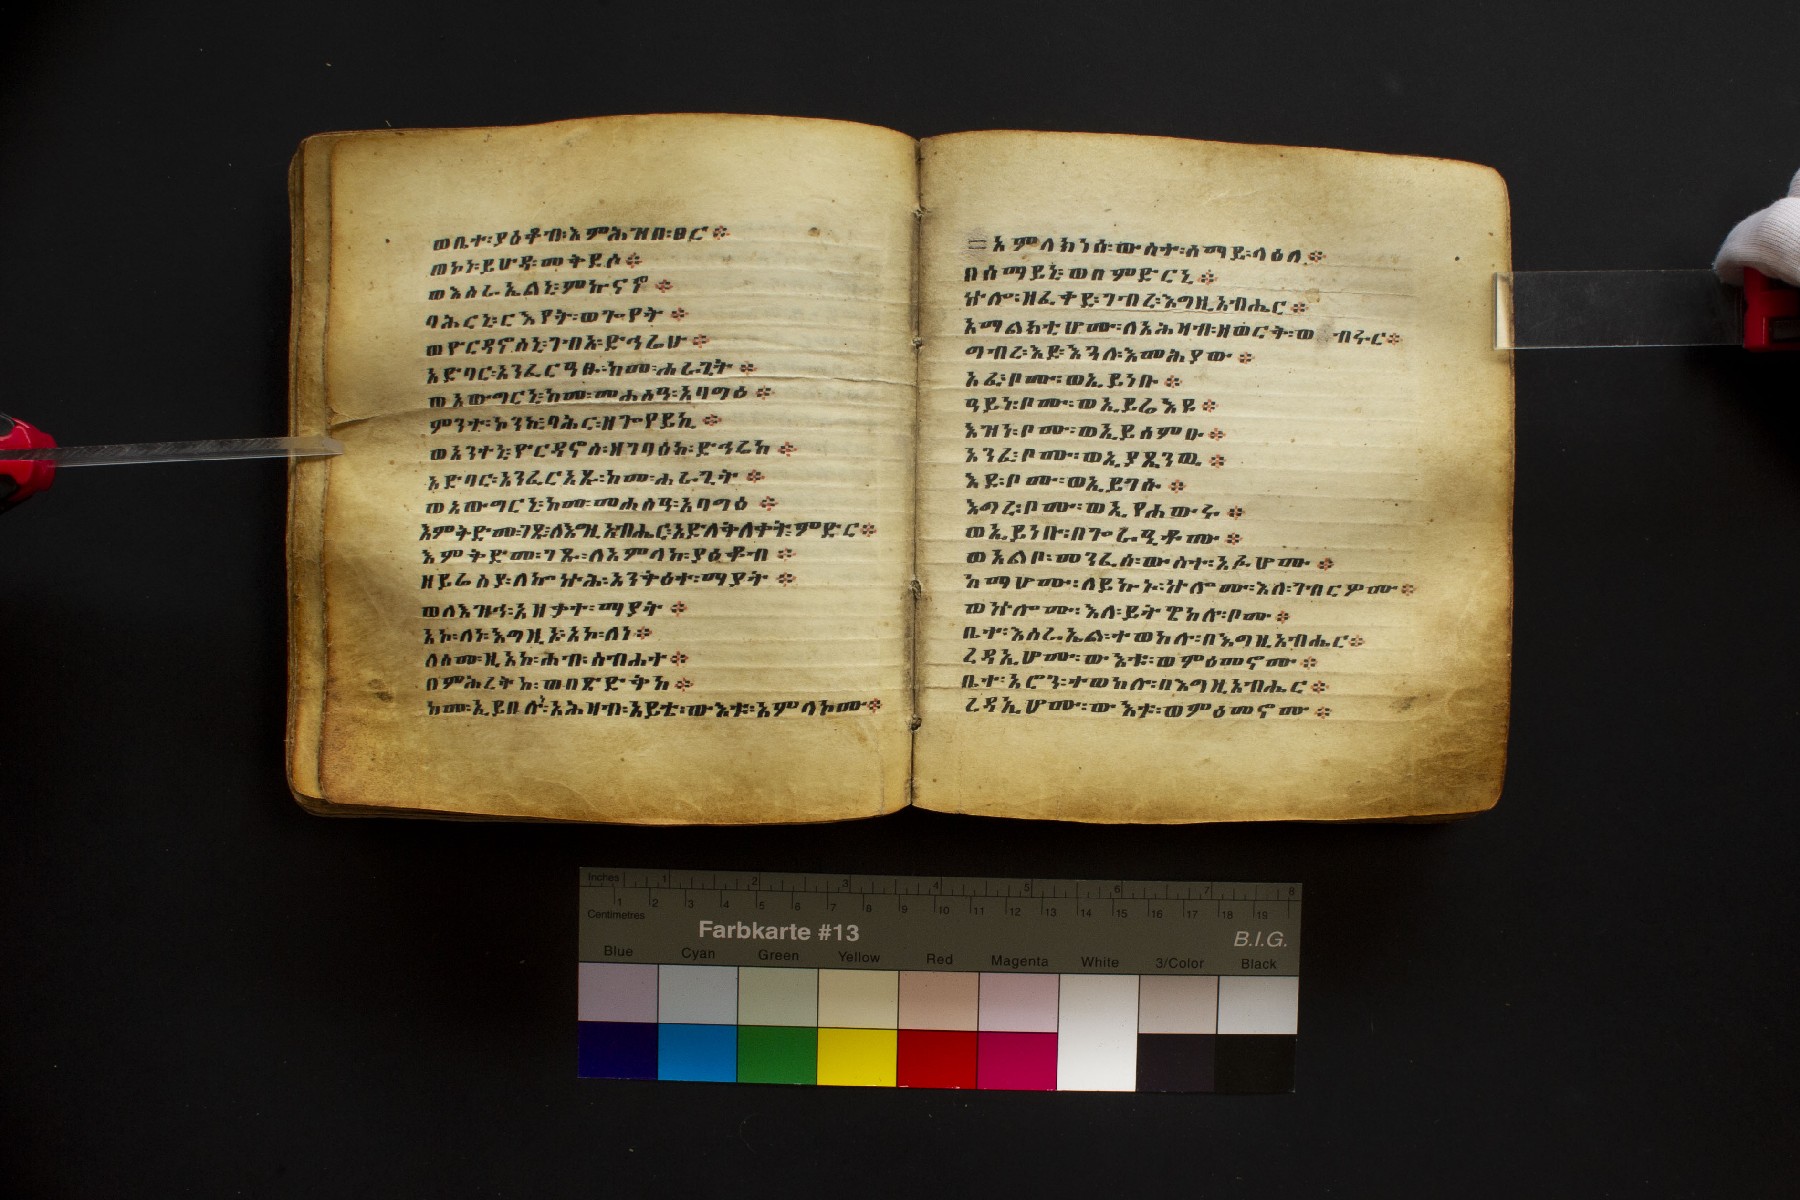 ወቤተ፡ያዕቆብ፡እምሕዝበ፡ፀር፨
ወኮነ፡ይሁዳ፡መቅደሶ፨
ወእስራኤልኒ፡ምኵናኖ፨
ባሕርኒ፡ርእየት፡ወጐየት፨
ወዮርዳኖስኒ፡ገብአ፡ድኅሬሁ፨
አድባር፡አንፈርዓፁ፡ከመ፡ሐራጊት፨
ወአውግርኒ፡ከመ፡መሐስዓ፡አባግዕ፨
ምንተ፡ኮንኪ፡ባሕር፡ዘጐየይኪ፨
ወአንተኒ፡ዮርዳኖስ፡ዘገባዕከ፡ድኅሬከ፨
አድባር፡አንፈርአጹ፡ከመ፡ሐራጊት፨
ወአውግርኒ፡ከመ፡መሐስዓ፡አባግዕ፨
እምቅድመ፡ገጹ፡ለእግዚአብሔር፡አድለቅለቀት፡ምድር፨
እምቅድመ፡ገጹ፡ለአምላከ፡ያዕቆብ፨
ዘይሬስያ፡ለኰኵሕ፡አንቅዕተ፡ማያት፨
ወለእዝኅ፡አዘቃተ፡ማያት፨
አኮ፡ለነ፡እግዚኦ፡አኮ፡ለነ፨
ለስመ፡ዚአከ፡ሀብ፡ስብሐተ፨
በምሕረትከ፡ወበጽድቅከ፨
ከመ፡ኢይበሉ፡አሕዛብ፡አይቴ፡ውእቱ፡አምላኮሙ፨
አምላክነሰ፡ውስተ፡ሰማይ፡ላዕለ፨
በሰማይኒ፡ወበምድርኒ፨
ኵሎ፡ዘፈቀደ፡ገብረ፡እግዚአብሔር፨
አማልክቲሆሙ፡ለአሕዛብ፡ዘወርቅ፡ወ ብሩር፨
ግብረ፡እደ፡እጓለ፡እመሕያው፨
አፈ፡ቦሙ፡ወኢይነቡ፨
ዓይነ፡ቦሙ፡ወኢይሬእዩ፨
እዝነ፡ቦሙ፡ወኢይሰምዑ፨
አንፈ፡ቦሙ፡ወኢያጼንዉ፨
እደ፡ቦሙ፡ወኢይገሱ፨
እግረ፡ቦሙ፡ወኢየሐውሩ፨
ወኢይነቡ፡በጐራዒቶሙ፨
ወአልቦ፡መንፈሰ፡ውስተ፡አፉሆሙ፨
ከማሆሙ፡ለይኩኑ፡ኵሎሙ፡እለ፡ገብርዎሙ፨
ወኵሎሙ፡እለ፡ይትዌከሉ፡ቦሙ፨
ቤተ፡እስራኤል፡ተወከሉ፡በእግዚአብሔር፨
ረዳኢሆሙ፡ውእቱ፡ወምዕመኖሙ፨
ቤተ፡አሮን፡ተወከሉ፡በእግዚአብሔር፨
ረዳኢሆሙ፡ውእቱ፡ወምዕመኖሙ፨
Inches 1 2 3 4 5 6 7 8
1 2 3 4 5 6 7 8 9 10 11 12 13 14 15 16 17 18 19
Centimetres
Farbkarte #13
B.I.G.
Blue Cyan Green Yellow Red Magenta White 3/Color Black